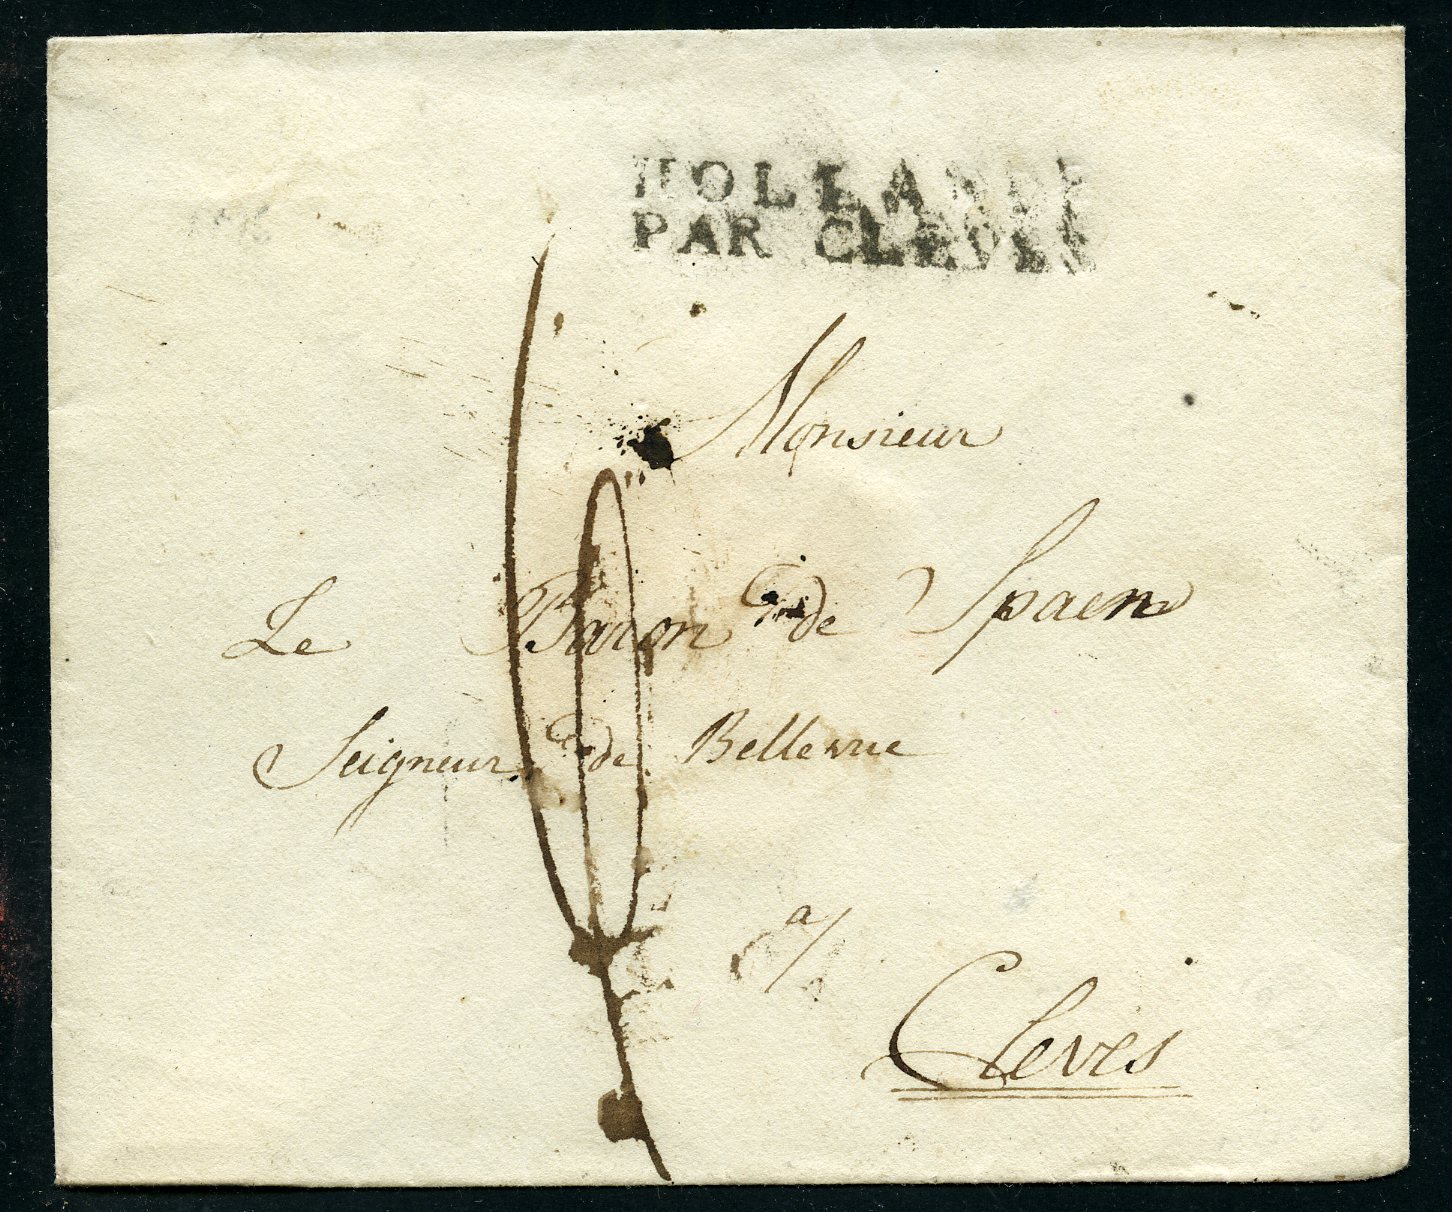 HOLLANDE
PAR CLEVES
Monsieur
Le Baron de Spaen
Seigneur de Bellevue
a/
Cleves